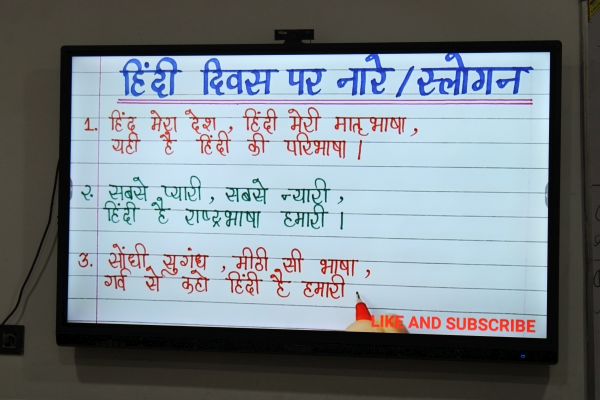 हिंदी दिवस पर नारे / स्लोगन
1. हिंद मेरा देश, हिंदी मेरी मातृभाषा,
यही है हिंदी की परिभाषा।
२. सबसे प्यारी, सबसे न्यारी,
हिंदी है राष्ट्रभाषा हमारी।
3. सोंधी सुगंध, मीठी सी भाषा,
गर्व से कहो हिंदी है हमारी
LIKE AND SUBSCRIBE